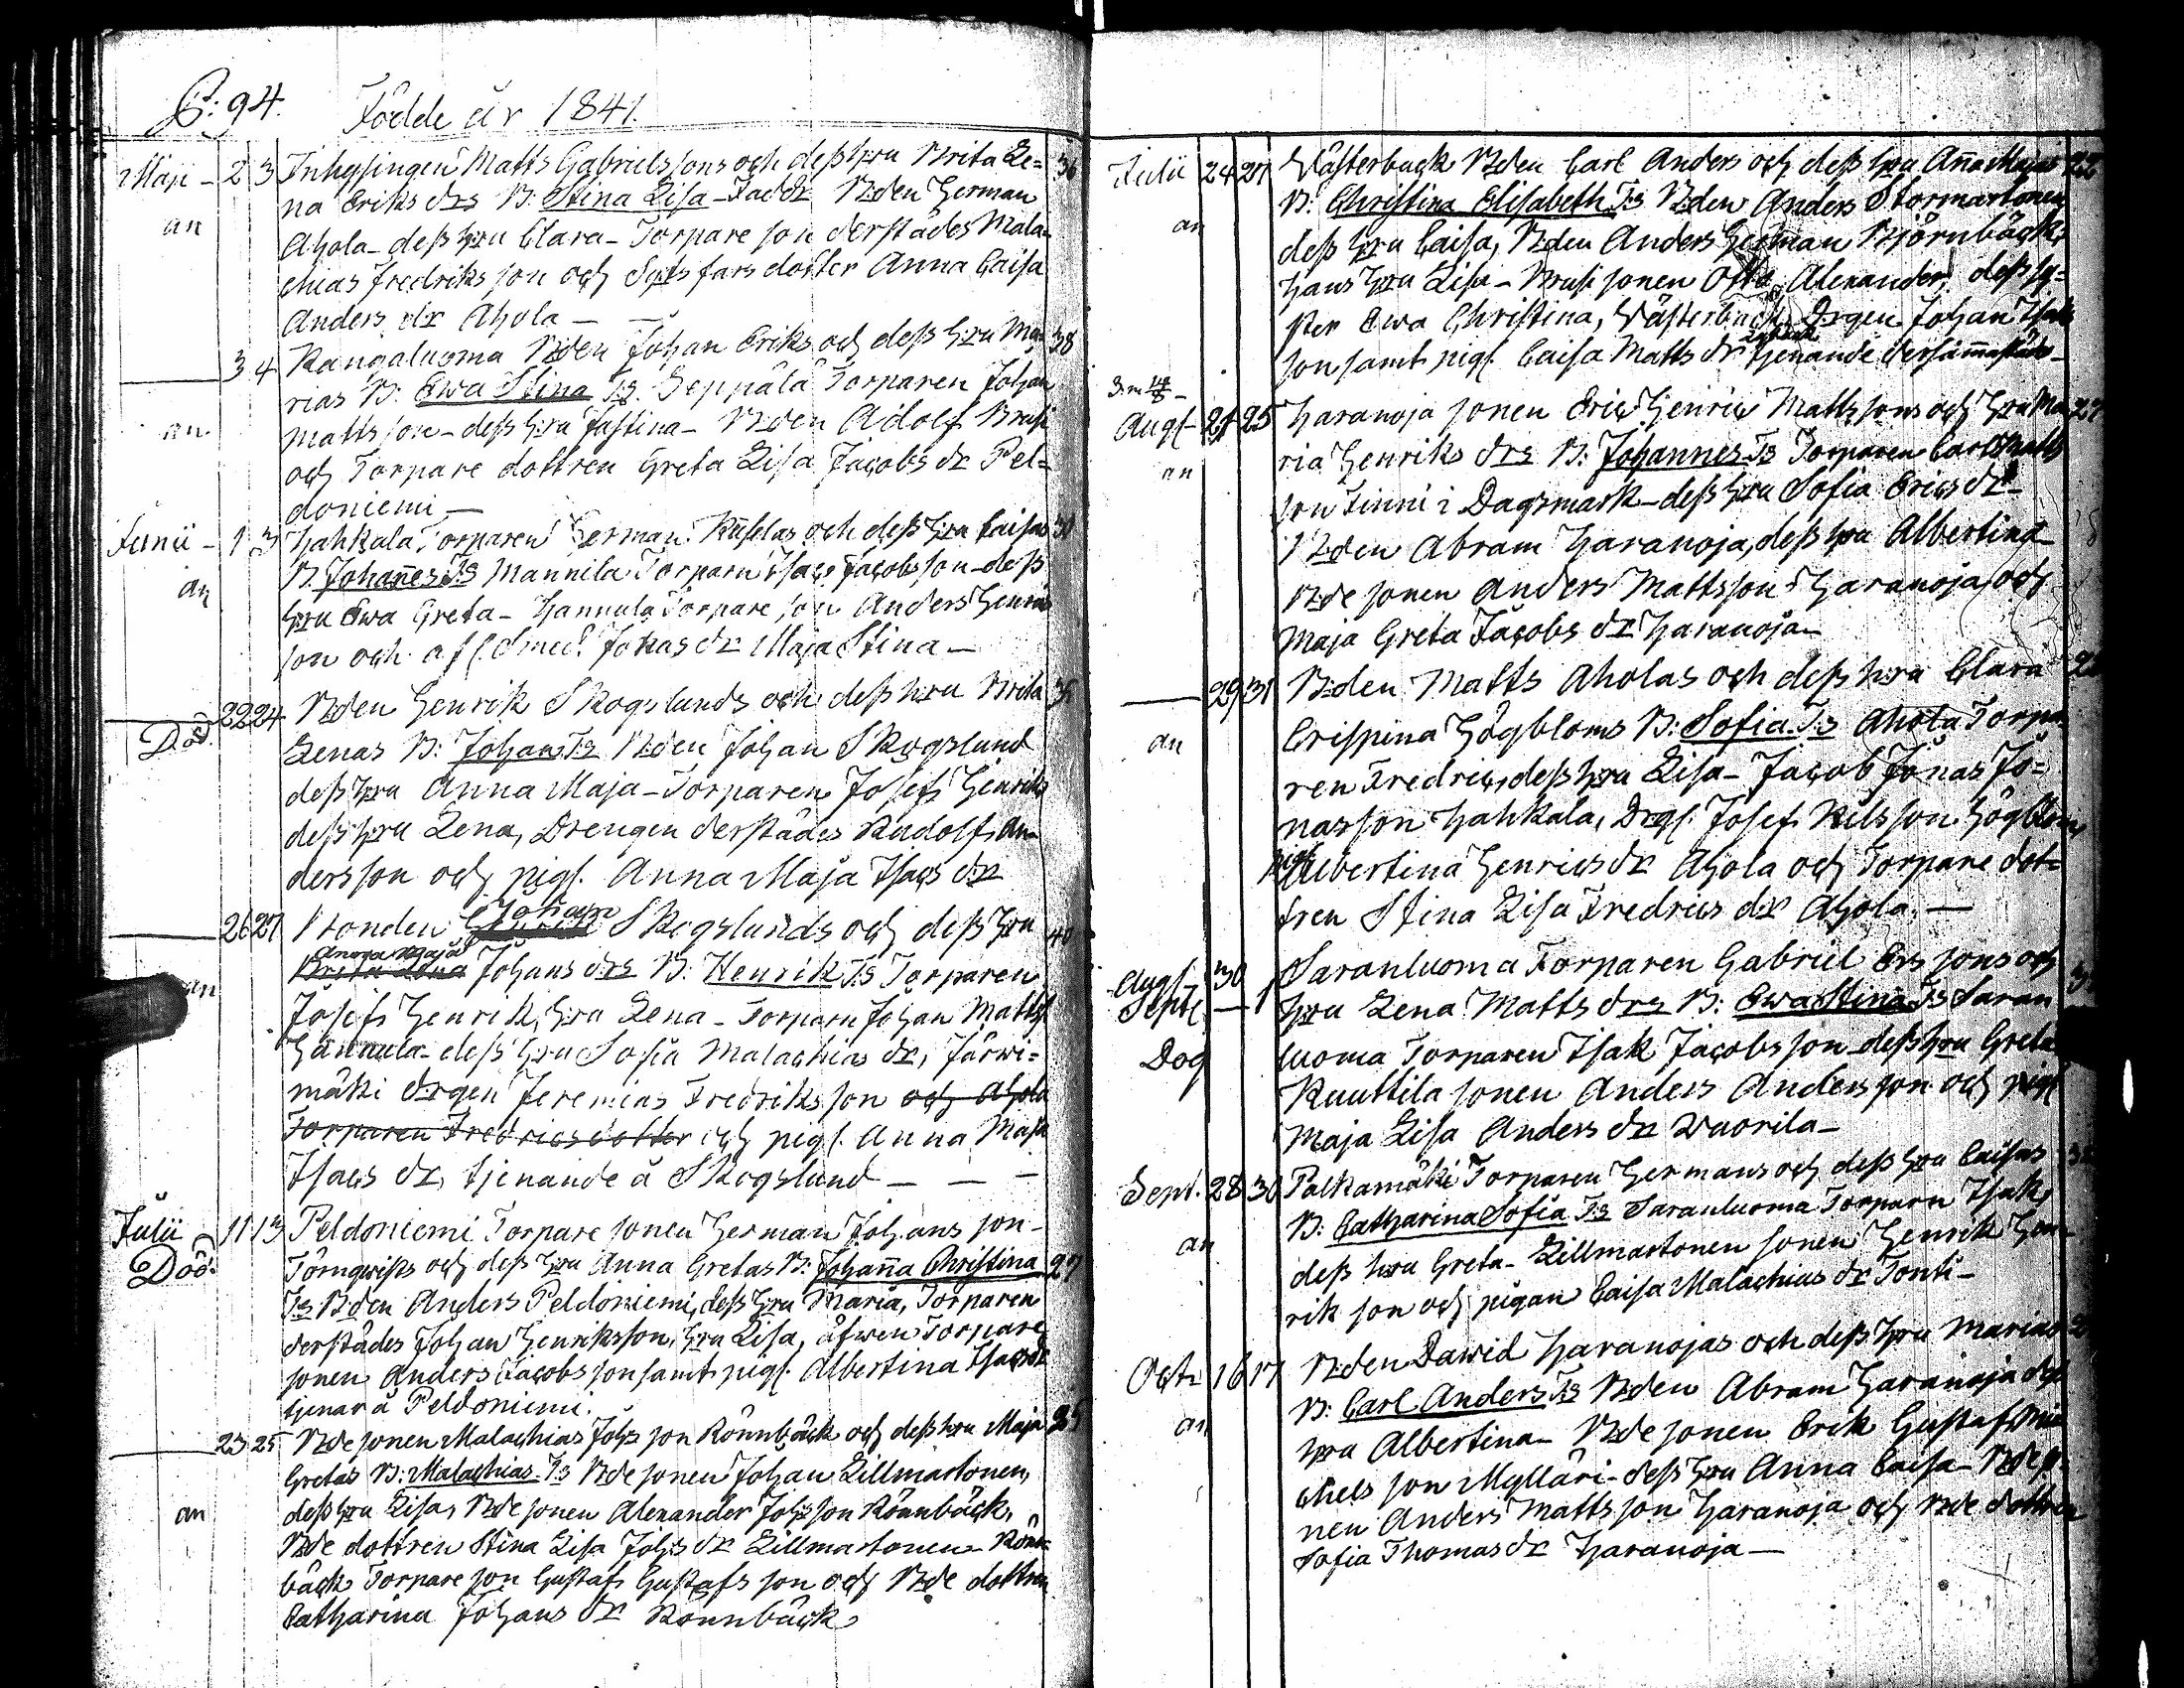 P: 94. Födde år 1841.
Maji - 2 3 Inhysingen Matts Gabrielssons och dess hru Brita Le= 36
an na Eriks drs B: Stina Lisa - Fadd. Bden Herman
Ahola - dess hru Clara - Torpare son derstädes Mala=
chias Fredriksson och Sytnfars dotter Anna Caisa
Anders dr Ahola —
— 3 4 Kangaluoma Bden Johan Eriks och dess hru Ma= 38
rias B: Ewa Stina Ts. Seppälä Torparen Johan
an Mattsson - dess hru Justina - Bden Adolf Brusi
och Torpare dottren Greta Lisa Jacobs dr Pel=
doniemi —
Junii - 1 3 Hahkala Torparen Herman Kuselas och dess hru Caisas 30
an B. Johannes Ts Mannila Torparn Isac Jacobsson - dess
hru Ewa Greta - Hannula Torpare son Anders Henriks
son och afl. Smed. Jonas dr Maja Stina —
— 22 24 Bden Henrik Skogslunds och dess hru Brita 35
Död. Lenas B: Johan Ts Bden Johan Skogslund
dess hru Anna Maja - Torparen Josef Henriks
dess hru Lena, Drengen derstädes Rudolf An=
dersson och pigl. Anna Maja Isacs dr
— 26 27 Bonden Henrik Johan Skogslunds och dess hru 40
Brita Lena Anna Maja Johans drs B: Henrik Ts Torparen
an Josef Henrik, hru Lena - Torparn Johan Matts
Hannula - dess hru Sofia Malachias dr, Järwi=
mäki drgen Jeremias Fredriksson och Ahola
Torparen Fredricsdotter och pigl. Anna Maja
Isacs dr, tjenande å Skogslund — — —
Julii 11 13 Peldoniemi Torpare sonen Herman Johansson -
Död. Törnqwists och dess hru Anna Gretas B: Johanna Christina 27
Ts Bden Anders Peldoniemi, dess hru Maria, Torparen
derstädes Johan Henriksson, hru Lisa, äfwen Torpare
sonen Anders Jacobsson samt pigl. Albertina Isacs dr
tjenar å Peldoniemi.
— 23 25 Bde sonen Malachias Johs son Rönnbäck och dess hru Maja 25
Gretas B: Malachias Ts Bde sonen Johan Lillmartonen,
an dess hru Lisa, Bde sonen Alexander Johs son Rönnbäck,
Bde dottren Stina Lisa Johs dr Lillmartonen - Rönn=
bäck Torpare son Gustaf Gustafsson och Bde dottren
Catharina Johans dr Rönnbäck
Julii 24 27 Wästerback Bden Carl Anders och dess hru Anna Majas 22
an B: Christina Elisabeth Ts Bden Anders Stormartonen
dess hru Caisa, Bden Anders Herman Björnbäck,
hans hru Lisa - Brusi sonen Otto Alexander, dess sy=
ster Ewa Christina, Wästerback Drgen Johan Isak
son samt pigl Caisa Matts dr tjenande dersammastäds -
Augl - 24 25 Haranoja sonen Eric Henric Mattssons och hru Ma= 27
an ria Henriks drs B: Johannes Ts Torparen Carl Matts
son Finni i Dagsmark - dess hru Sofia Erics dr -
Bden Abram Haranoja, dess hru Albertina
Bde sonen Anders Mattsson Haranoja och
Maja Greta Jacobs dr Haranoja -
— 29 31 Bden Matts Aholas och dess hru Clara
an Crispina Högbloms B: Sofia Ts Ahola Torpa=
ren Fredric, dess hru Lisa - Jacob Jonas Jo=
nasson Hahkala, Drgl. Josef Nilsson Högblom,
pigl Albertina Henrics dr Ahola och Torpare dot=
tren Stina Lisa Fredrics dr Ahola —
Augl. 30 Saranluoma Torparen Gabriel Ers sons och
Septe — 1 hru Lena Matts drs B: Ewa Stina Ts Saran
Dog luoma Torparen Isak Jacobsson dess hru Greta
Kuuttila sonen Anders Andersson och pigl
Maja Lisa Anders dr Wuorila -
Sept. 28 30 Palkamäki Torparen Hermans och dess hru Caisas
an B: Catharina Sofia Ts Saranluoma Torparn Isak,
dess hru Greta - Lillmartonen sonen Henrik Hen=
rik son och pigan Caisa Malachias dr Tonti -
Octr 16 17 Bden Dawid Haranojas och dess hru Marias
an B: Carl Anders Ts Bden Abram Haranoja dess
hru Albertina - Bde sonen Erik Gustaf Mi=
chels son Mylläri - dess hru Anna Caisa - Bde so=
nen Anders Mattsson Haranoja och Bde dottren
Sofia Thomas dr Haranoja —